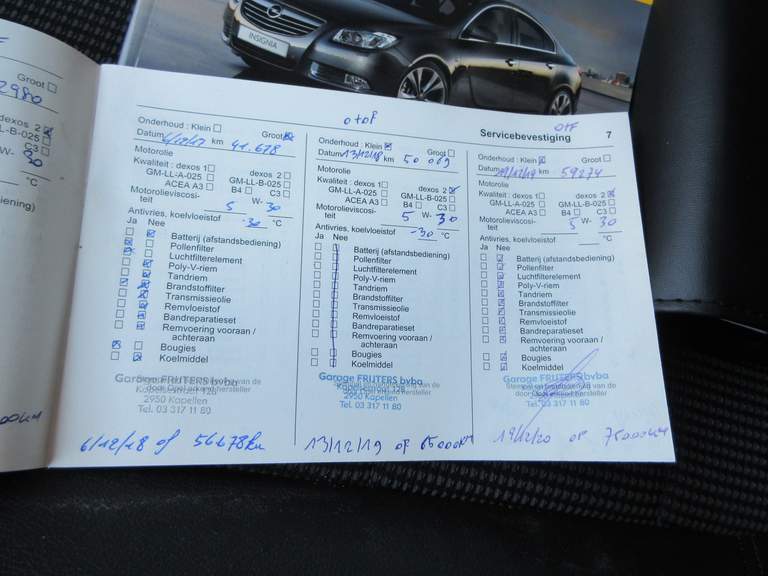 INSIGNIA
Groot
2980
dexos 2
LL-B-025
C3
W- 30
°C
ening)
Servicebevestiging 7
Onderhoud : Klein Groot
Datum 6/12/17 km 41.678
Motorolie
Kwaliteit : dexos 1 dexos 2
GM-LL-A-025 GM-LL-B-025
ACEA A3 B4 C3
Motorolieviscosi-
teit 5 W- 30
Antivries, koelvloeistof -30 °C
Ja Nee
Batterij (afstandsbediening)
Pollenfilter
Luchtfilterelement
Poly-V-riem
Tandriem
Brandstoffilter
Transmissieolie
Remvloeistof
Bandreparatieset
Remvoering vooraan /
achteraan
Bougies
Koelmiddel
Garage FRIJTERS bvba
2950 Kapellen
Tel. 03 317 11 80
6/12/18 of 56.678 km
OTOF
Onderhoud : Klein Groot
Datum 13/12/18 km 50 069
Motorolie
Kwaliteit : dexos 1 dexos 2
GM-LL-A-025 GM-LL-B-025
ACEA A3 B4 C3
Motorolieviscosi-
teit 5 W- 30
Antivries, koelvloeistof -30 °C
Ja Nee
Batterij (afstandsbediening)
Pollenfilter
Luchtfilterelement
Poly-V-riem
Tandriem
Brandstoffilter
Transmissieolie
Remvloeistof
Bandreparatieset
Remvoering vooraan /
achteraan
Bougies
Koelmiddel
Garage FRIJTERS bvba
2950 Kapellen
Tel. 03 317 11 80
13/12/19 OF 65000KM
OTF
Onderhoud : Klein Groot
Datum 19/12/19 km 59274
Motorolie
Kwaliteit : dexos 1 dexos 2
GM-LL-A-025 GM-LL-B-025
ACEA A3 B4 C3
Motorolieviscosi-
teit 5 W- 30
Antivries, koelvloeistof °C
Ja Nee
Batterij (afstandsbediening)
Pollenfilter
Luchtfilterelement
Poly-V-riem
Tandriem
Brandstoffilter
Transmissieolie
Remvloeistof
Bandreparatieset
Remvoering vooraan /
achteraan
Bougies
Koelmiddel
Garage FRIJTERS bvba
Tel. 03 317 11 80
19/12/20 OF 75000KM